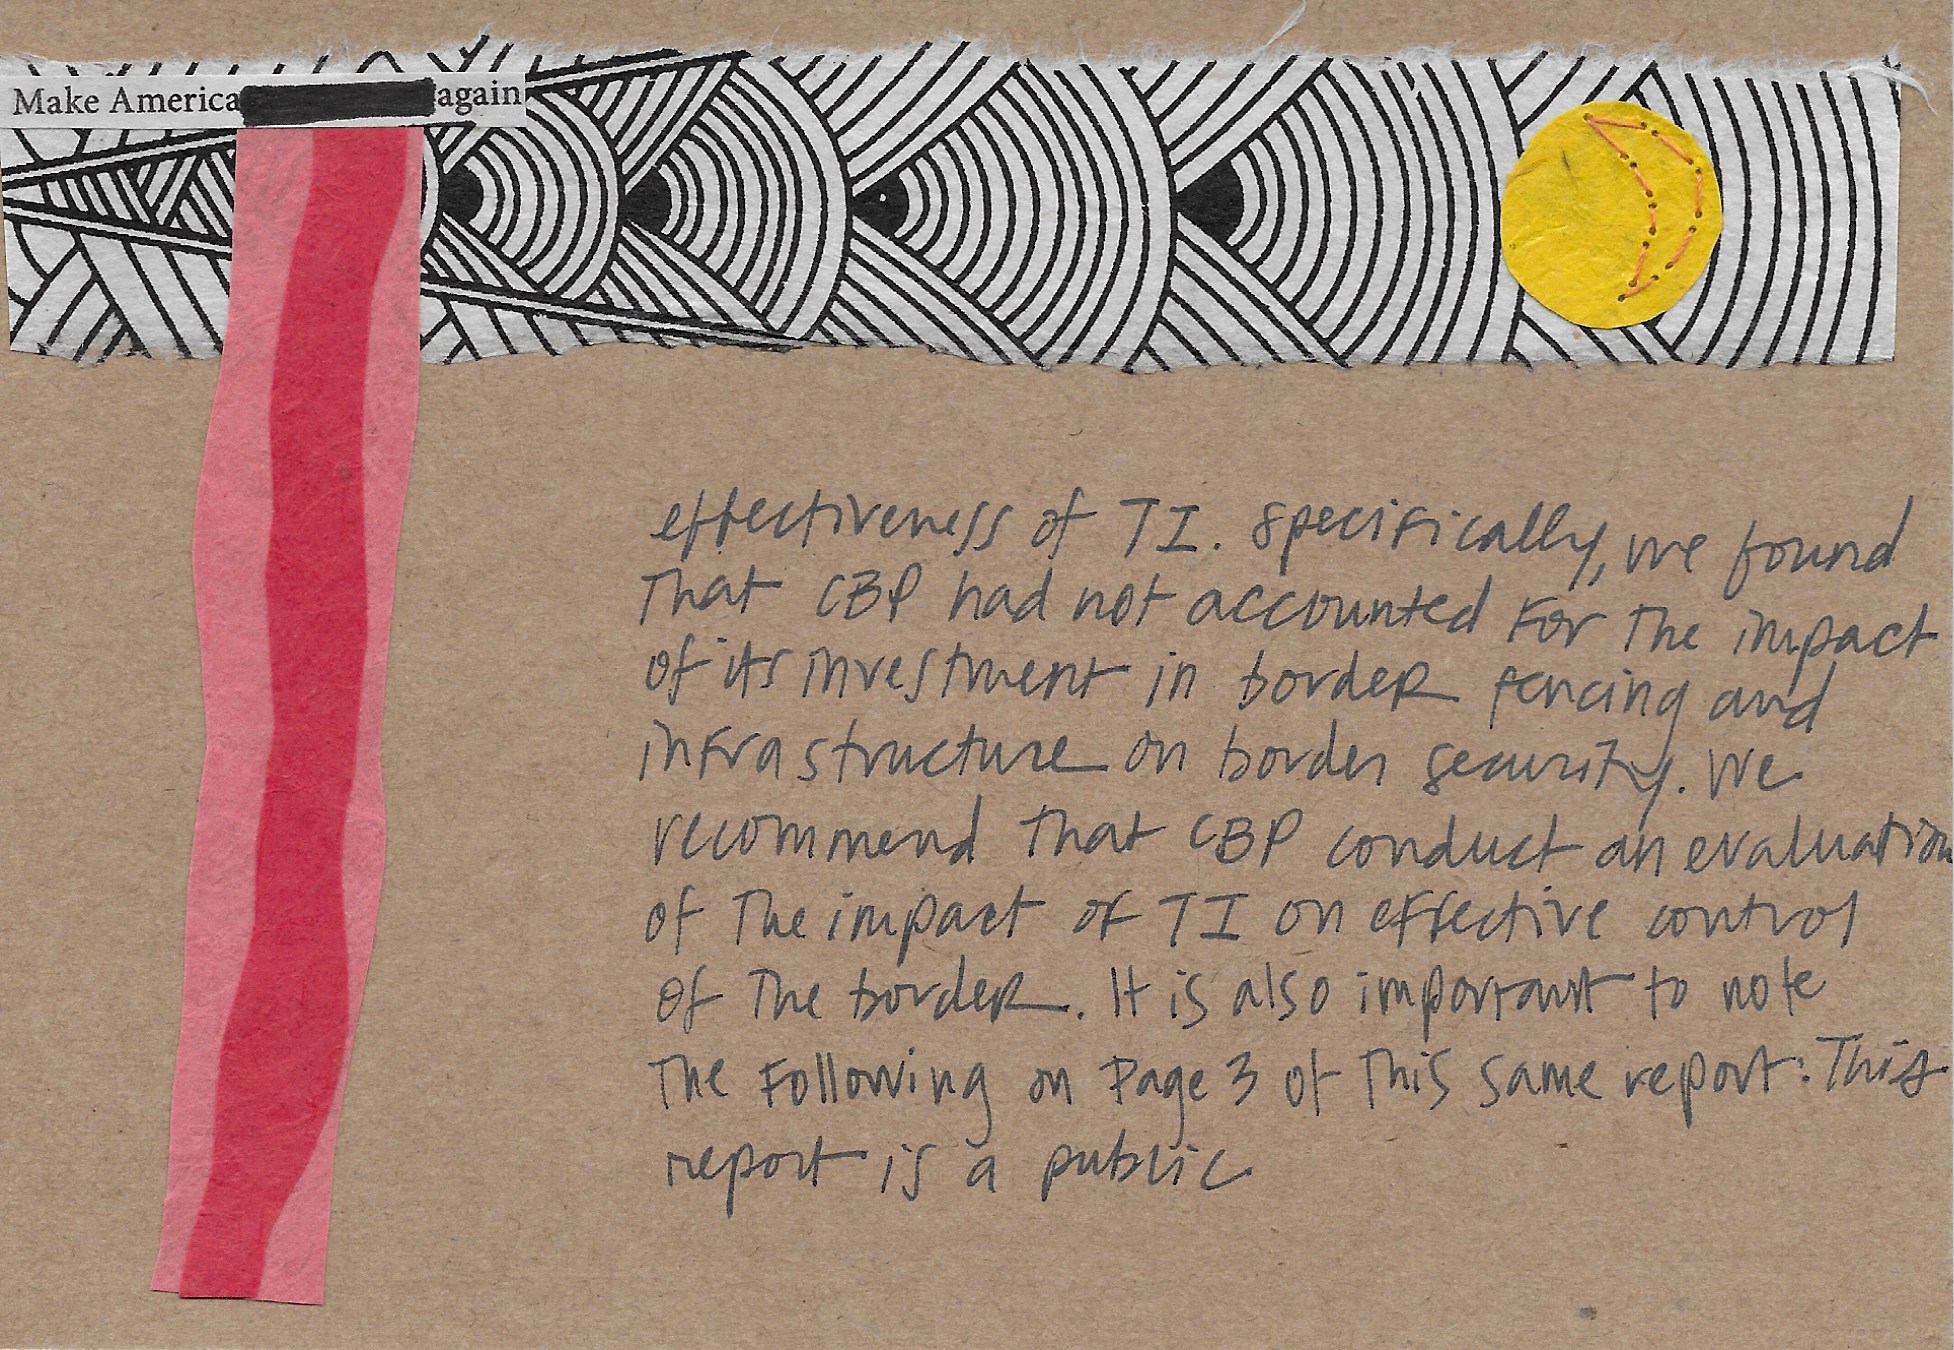 Make America again
effectiveness of TI. Specifically, we found
That CBP had not accounted For The impact
of its investment in border fencing and
infrastructure on border security. We
recommend That CBP conduct an evaluation
of The impact of TI on effective control
of The border. It is also important to note
The Following on Page 3 of This same report: This
report is a public